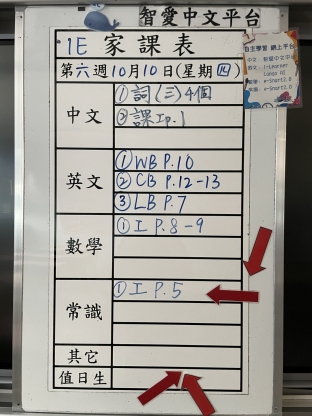 智愛中文平台
自主學習 網上平台
1E 家課表
第六週10月10日(星期四)
中文
①詞(三)4個
②課工p.1
英文
①WB P.10
②CB P.12-13
③LB P.7
數學
①工 P.8-9
常識
①工 P.5
其它
值日生